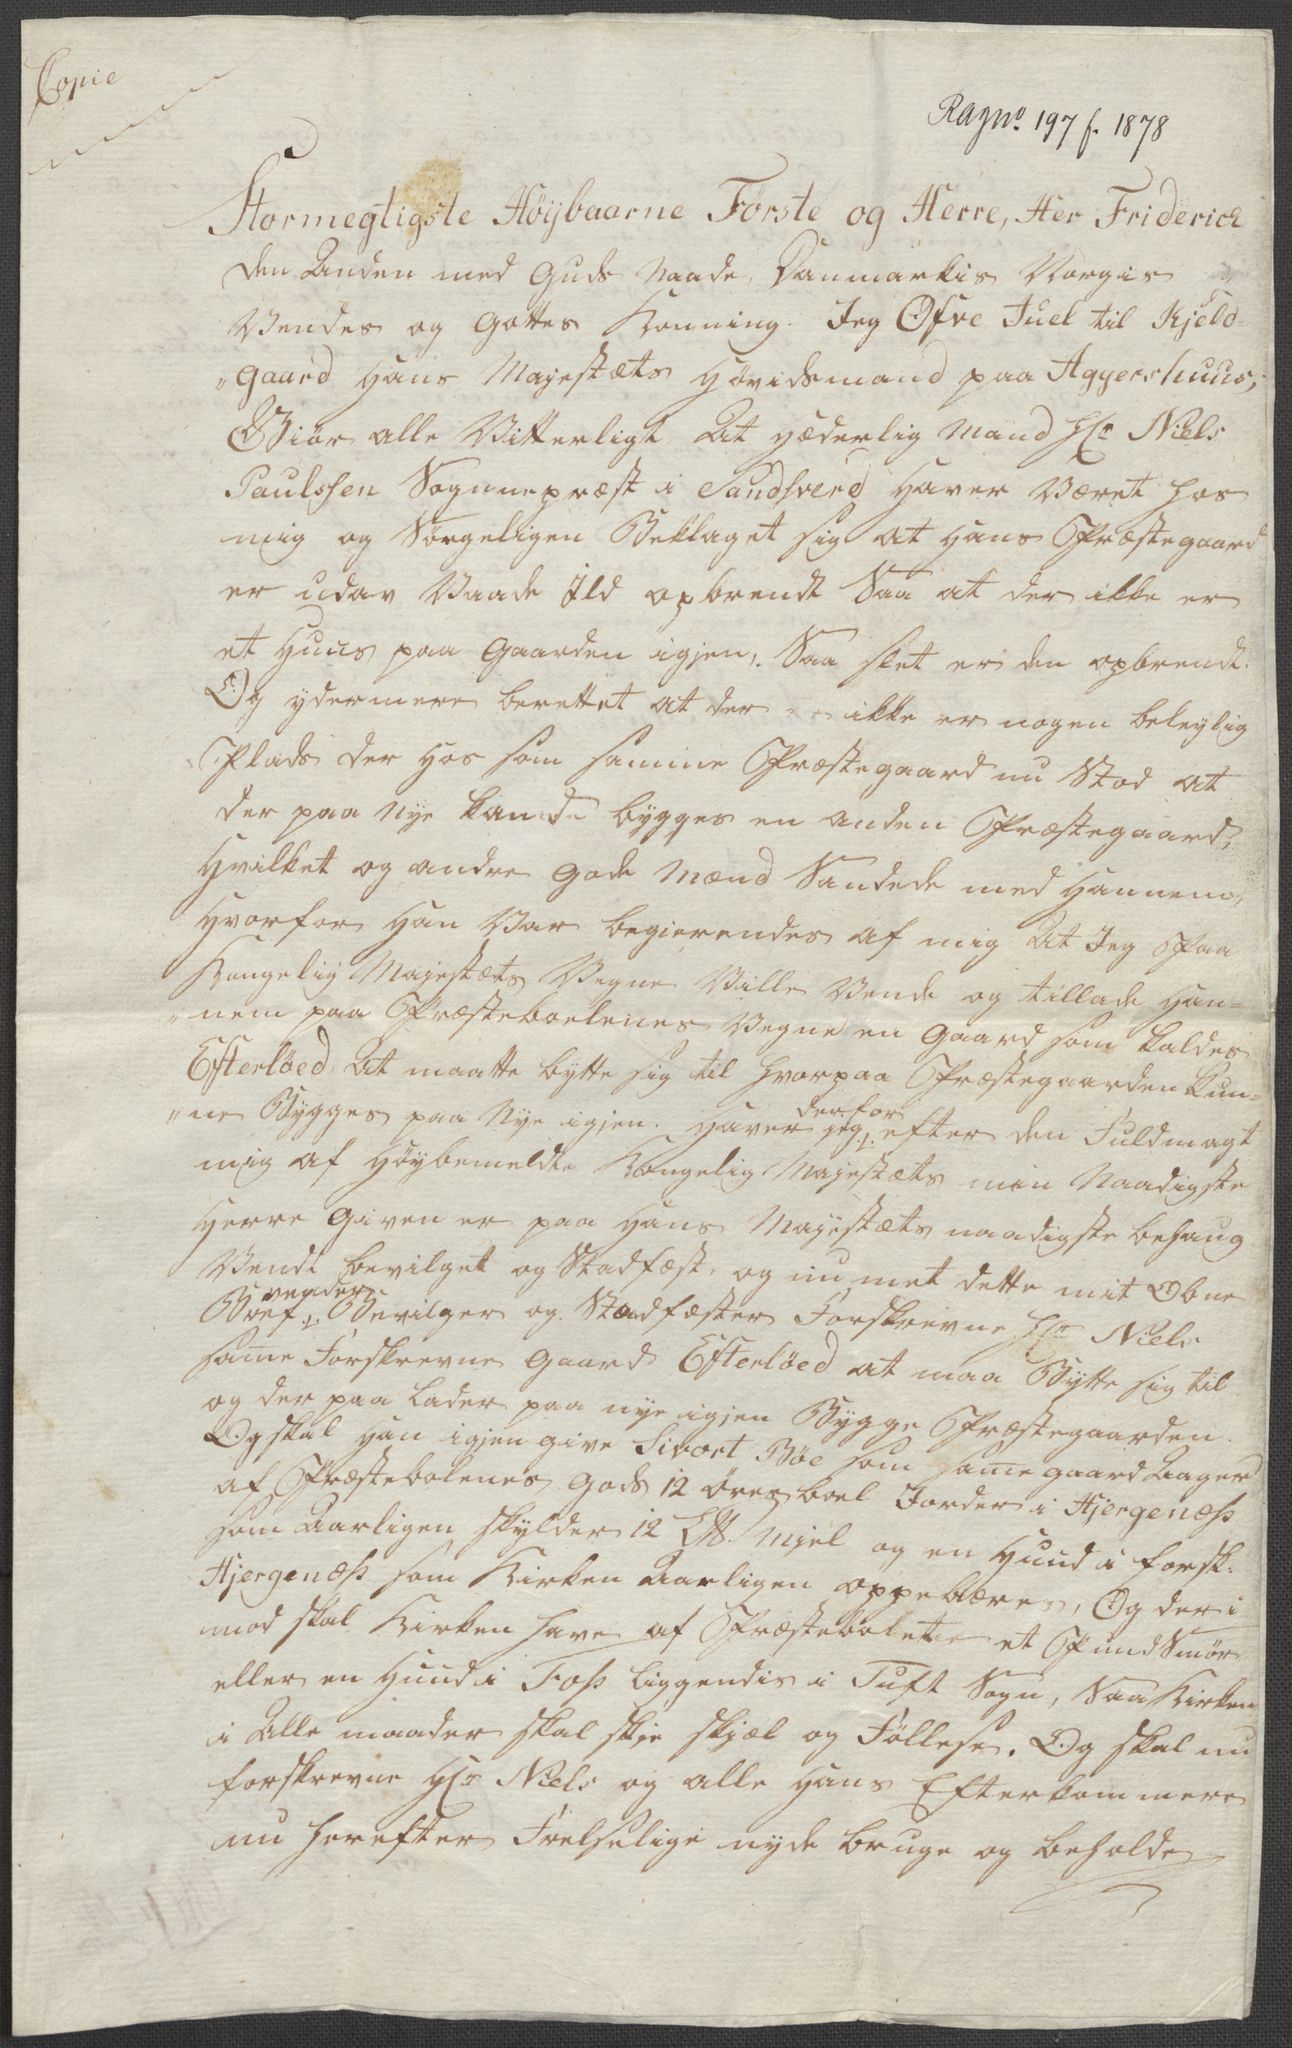 Copie
Ragno. 197 f. 1878
Stormegtigste Høÿbaarne Første og Herre, Her Friderich
den Anden med Guds Naade, Danmarkis Norgis
Vendes og Gottes Konning. Jeg Ofve Juel til Kjeld-
„gaard Hans Majestæts Høvidsmand paa Aggershuus;
Giør alle Vitterligt At Hæderlig Mand Hr Niels
Paulssen Sognnepræst i Sandsverd Haver Været hos
mig og Sørgeligen Beklaget sig at Hans Præstegaard
er udav Vaade Ild opbrendt Saa at der ikke er
et Huus paa Gaarden igjen, Saa slet er den opbrendt.
Og ydermere berettet at der ikke er nogen beleylig
Plads der Hos som samme Præstegaard nu Stod at
der paa Nye kande bygges en anden Præstegaard,
Hvilket og andre Gode Mænd Sandede med Hannem,
Hvorfor Han Var begierendes af mig At Jeg Paa
Kongelig Majestæts Vegne Ville Vende og tillade Han-
„nem paa Præsteboelenes Vegne en Gaard som kaldes
Efterløed At maatte bytte sig til Hvorpaa Præstegaarden kun-
„ne Bygges paa Nye igjen. Haver jeg derfor efter den Fuldmagt
mig af Høybemeldte Kongelig Majestæts min Naadigste
Herre Given er paa Hans Majestæts naadigste behaug
Vendt bevilget og Stadfæst, og nu met dette mit Obne
Bref vender Bevilger og Stadfæster Forskrevne Hr Niels
same Forskrevne Gaard Efterløed at maa Bytte sig til
og der paa lader paa nye igjen Bygge Præstegaarden.
Og skal Han igjen give Sivort Bøe som same gaard Aager
af Præstebolenes Gods 12 Øres boel Jorder i Hjergenæss
som Aarligen skylder 12 Mjel og en Huud i forsk:
Hjergenæss som Kirken Aarligen oppebærer, Og der i
mod skal Kirken have af Præstebolet et Pund Smør
eller en Huud i Foss liggendis i Tuft Sogn, Saa Kirken
i Alle maader skal skje skjæl og Føllese. Og skal nu
forskrevne Hr Niels og alle Hans Efterkommere
nu herefter Frelselige nyde bruge og beholde